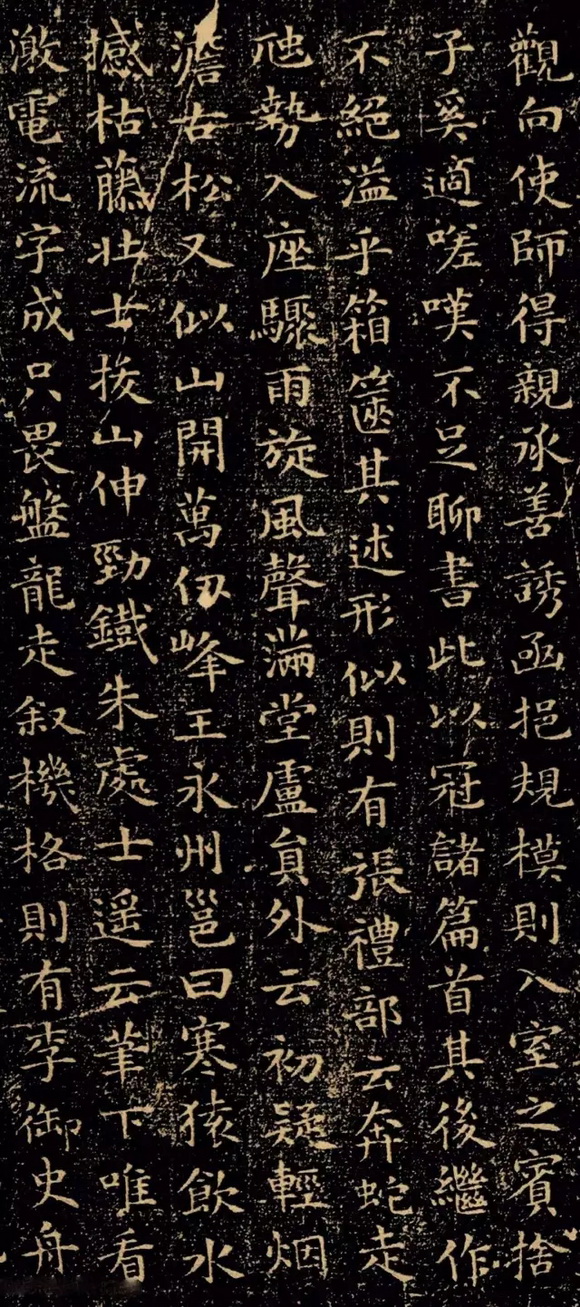 觀向使師得親承善誘函挹規模則入室之賓捨
子奚適嗟嘆不足聊書此以冠諸篇首其後繼作
不絕溢乎箱篋其述形似則有張禮部云奔蛇走
虺勢入座驟雨旋風聲滿堂盧員外云初疑輕烟
澹古松又似山開萬仞峰王永州邕曰寒猿飲水
撼枯藤壯士拔山伸勁鐵朱處士遥云筆下唯看
激電流字成只畏盤龍走叙機格則有李御史舟